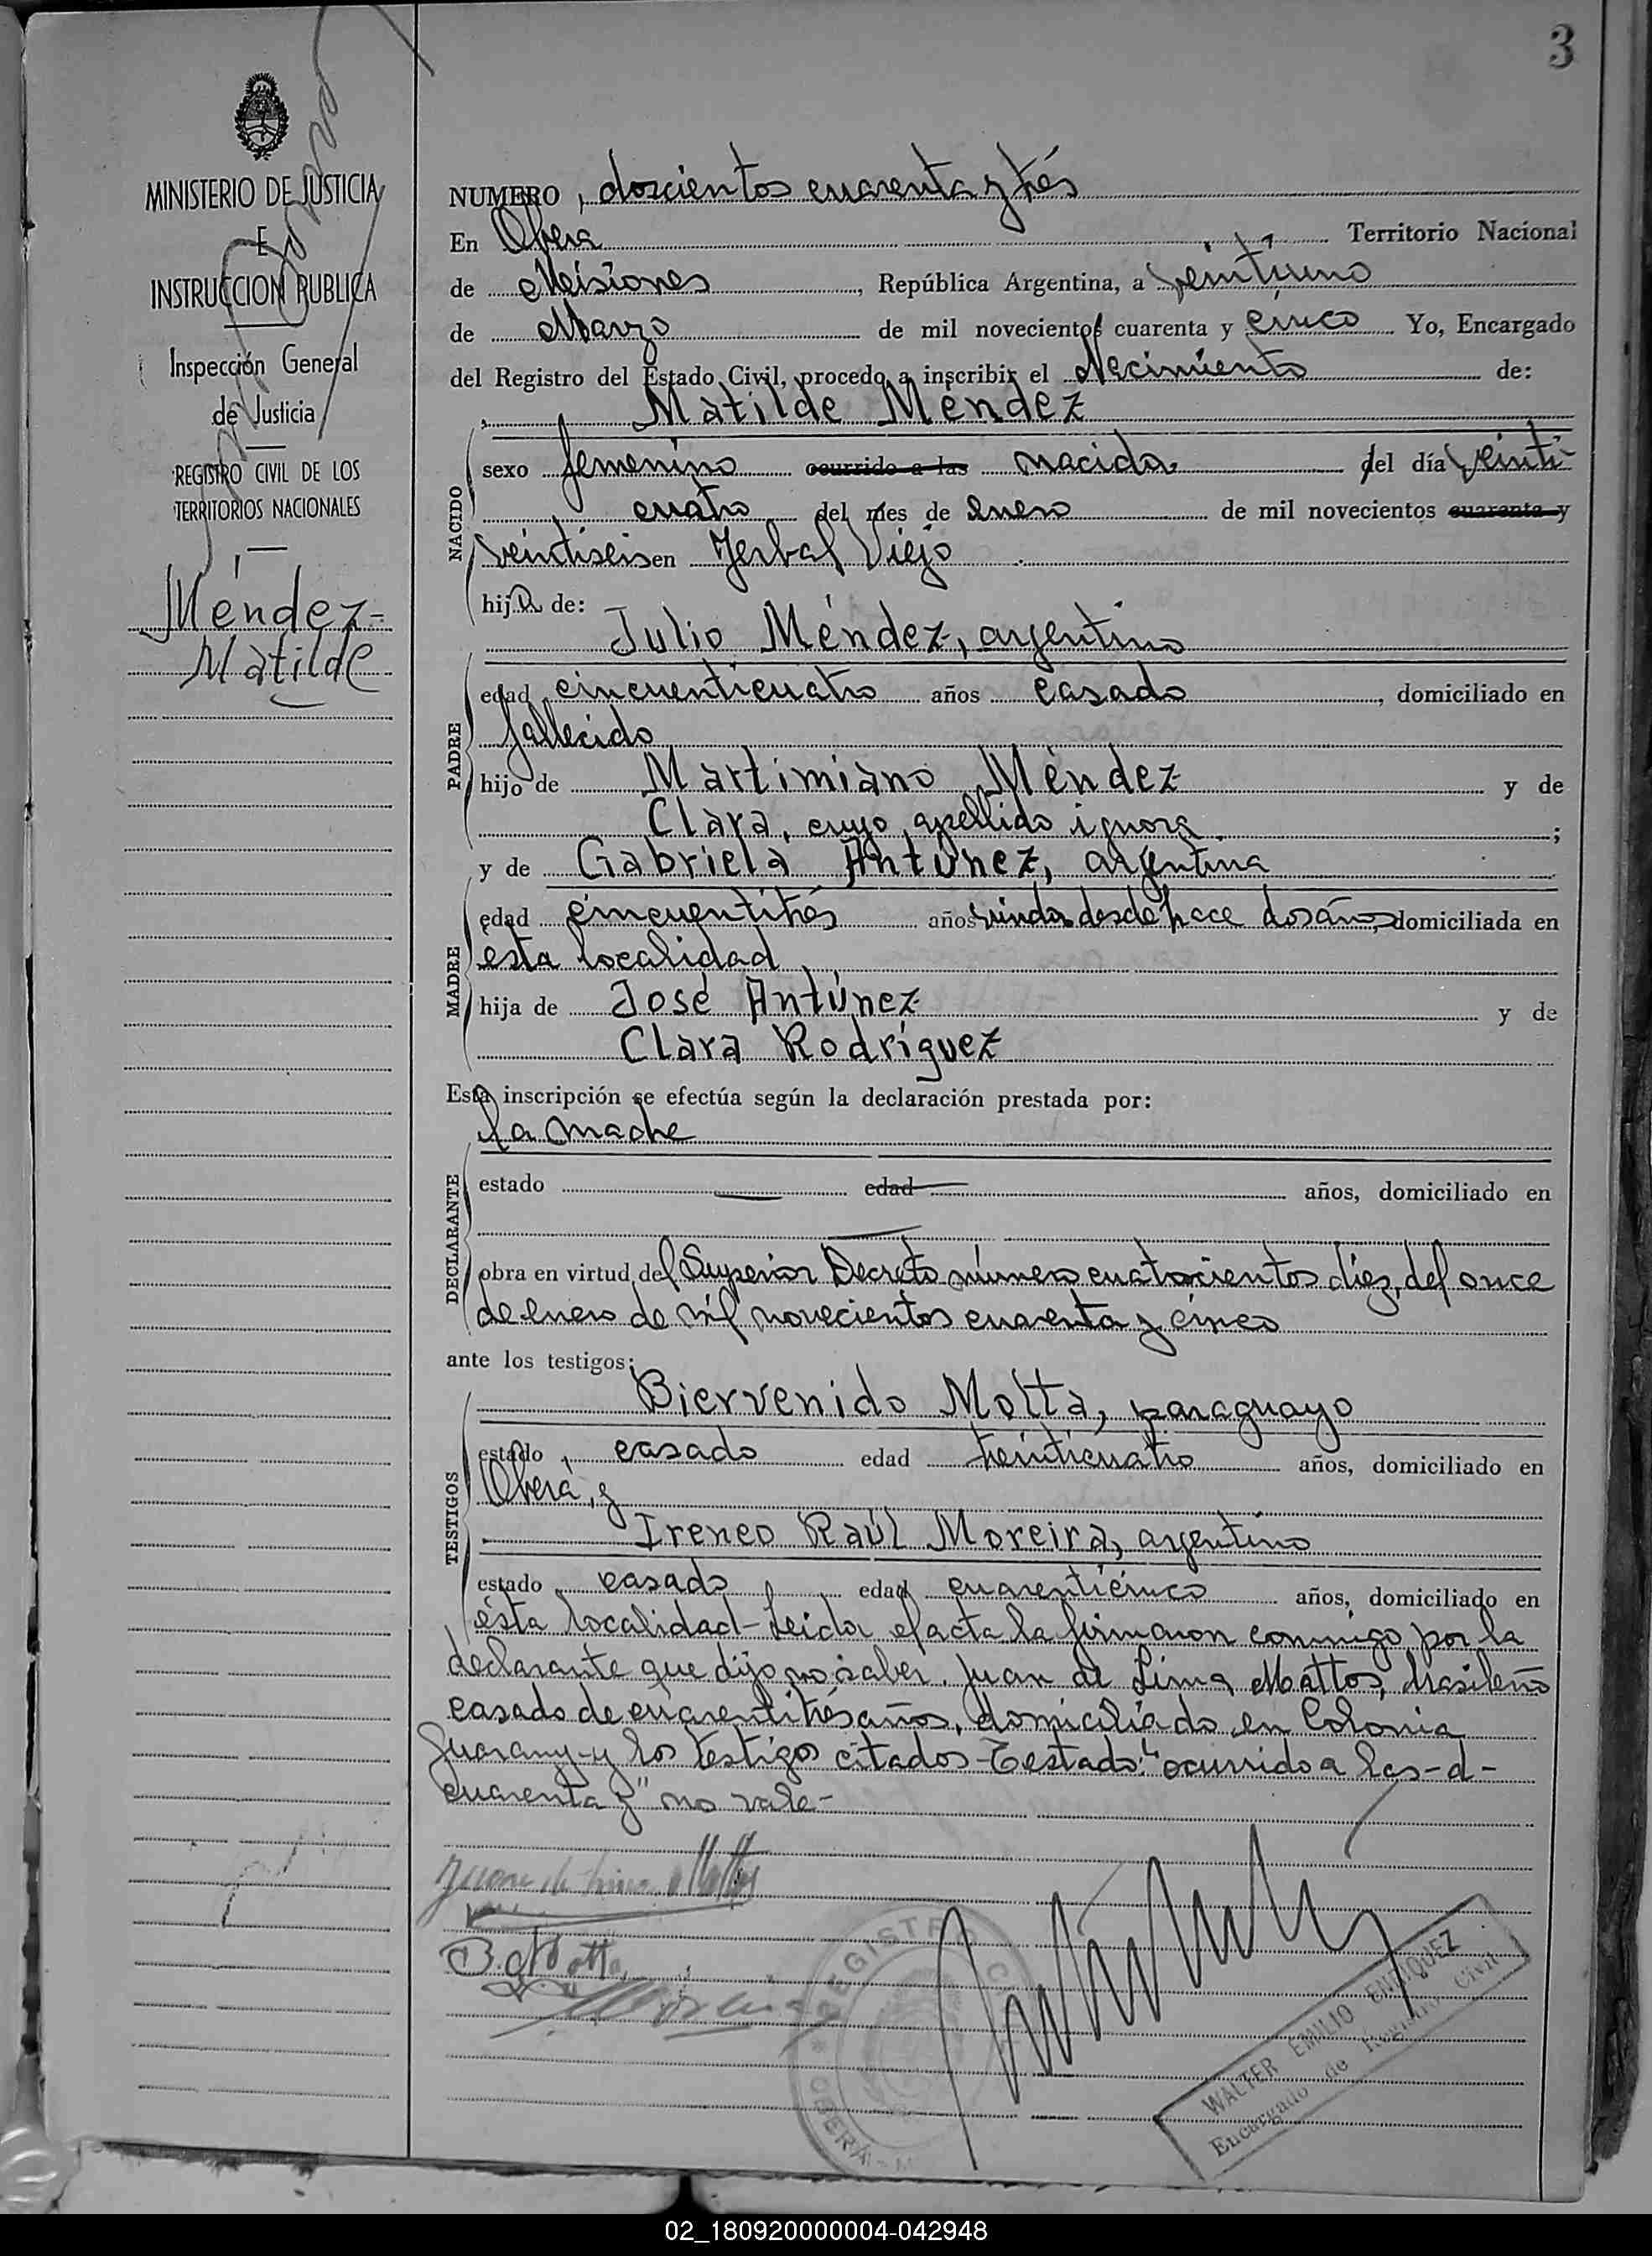 3
MINISTERIO DE JUSTICIA
E
INSTRUCCION PUBLICA
Inspección General
de Justicia
REGISTRO CIVIL DE LOS
TERRITORIOS NACIONALES
Méndez-
Matilde
NUMERO, doscientos cuarenta y trés
En Obera Territorio Nacional
de Misiones, República Argentina, a veintiuno
de Marzo de mil novecientos cuarenta y cinco Yo, Encargado
del Registro del Estado Civil, procedo a inscribir el Nacimiento de:
Matilde Méndez
NACIDO
sexo femenino ocurrido a las nacida del día veinti
cuatro del mes de Enero de mil novecientos cuarenta y
veintiseis en Yerbal Viejo
hija de:
Julio Méndez, argentino
PADRE
edad cincuenticuatro años casado, domiciliado en
fallecido
hijo de Martimiano Méndez y de
Clara, cuyo apellido ignora;
y de Gabriela Antúnez, argentina
MADRE
edad cincuentitrés años viuda desde hace dos años, domiciliada en
esta localidad
hija de José Antúnez y de
Clara Rodríguez
Esta inscripción se efectúa según la declaración prestada por:
la madre
DECLARANTE
estado edad años, domiciliado en
obra en virtud del Superior Decreto número cuatrocientos diez, del once
de enero de mil novecientos cuarenta y cinco
ante los testigos:
Bienvenido Motta, paraguayo
TESTIGOS
estado, casado edad treinticuatro años, domiciliado en
Oberá, y
Ireneo Raúl Moreira, argentino
estado casado edad cuarenticinco años, domiciliado en
ésta localidad- Leida el acta la firmaron conmigo, por la
declarante que dijo no saber, Juan de Lima Mattos, brasileño
casado de cuarentitrés años, domiciliado en Colonia
Guarany-y los testigos citados-Testado: "ocurrido a las-d-
cuarenta y" no vale-
Juan de Lima Mattos
B. Motta
REGISTRO CIVIL
OBERÁ - M
WALTER EMILIO ENRIQUEZ
Encargado de Registro Civil
02_180920000004-042948